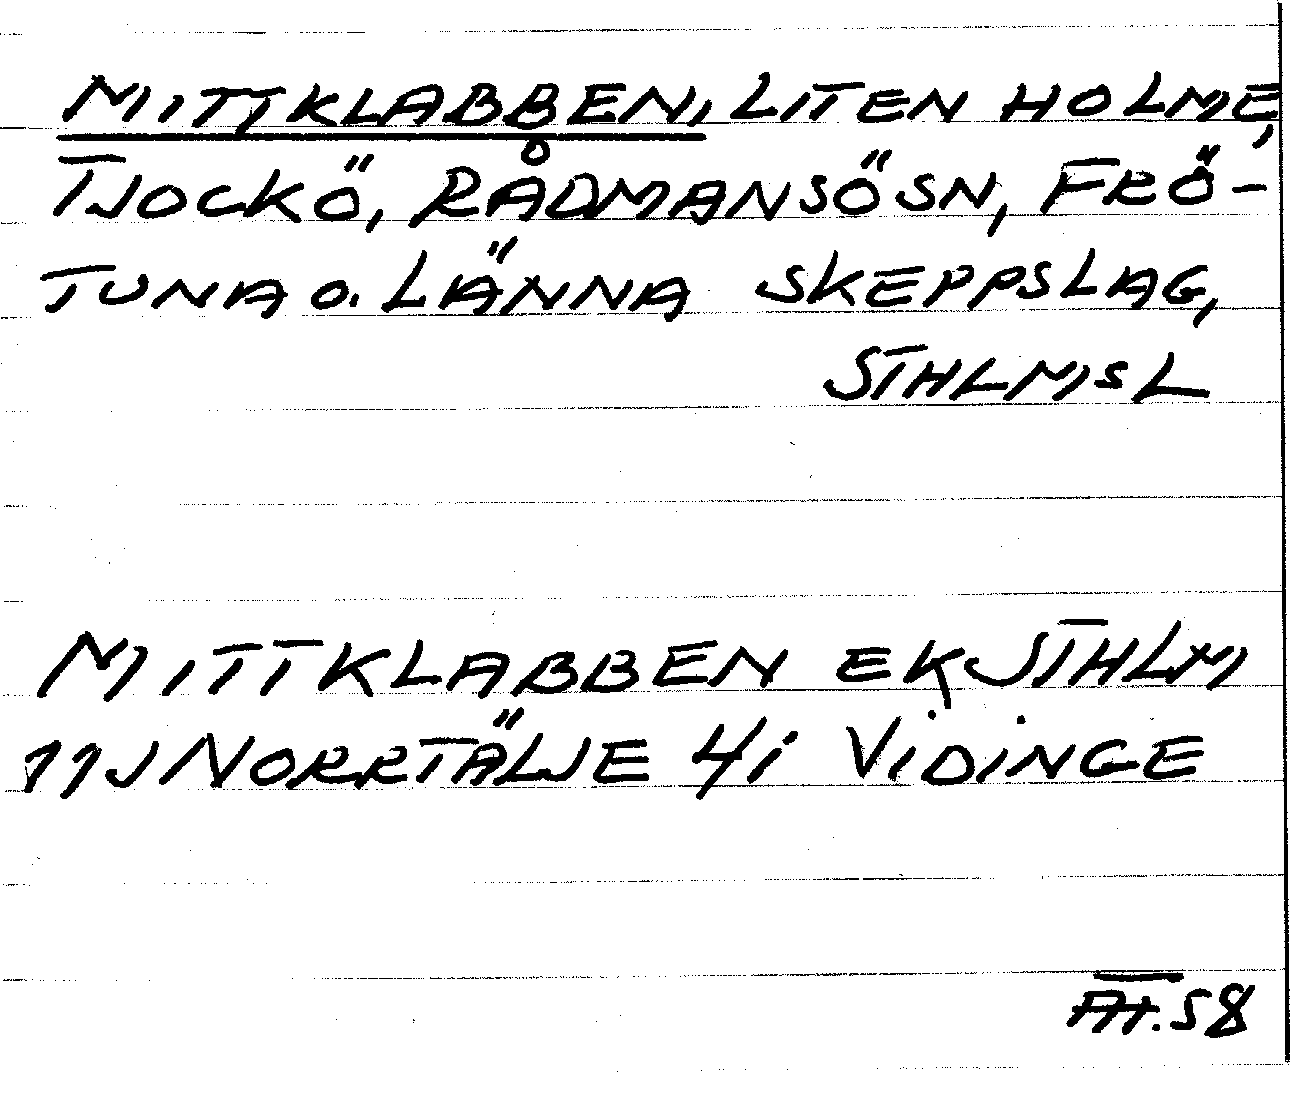 MITTKLABBEN, LITEN HOLME,
TJOCKÖ, RÅDMANSÖSN, FRÖ-
TUNA O. LÄNNA SKEPPSLAG,
STHLMSL
MITTKLABBEN EK STHLM
11J NORRTÄLJE 4i VIDINGE
58